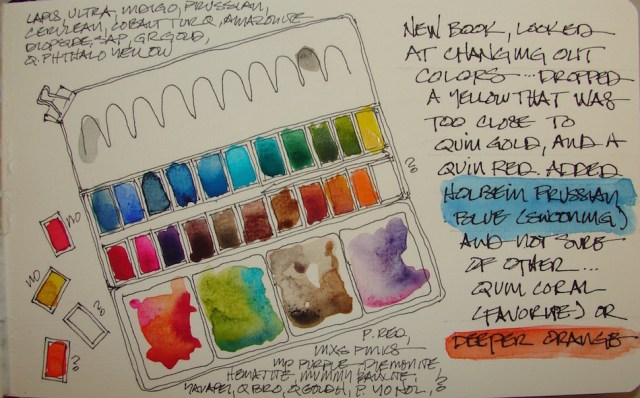 LAPIS, ULTRA, INDIGO, PRUSSIAN,
CERULEAN, COBALT TURQ, AMAZONITE
DIOPSIDE, SAP, GR.GOLD,
Q. PHTHALO YELLOW
NEW BOOK, LOOKED
AT CHANGING OUT
COLORS --- DROPPED
A YELLOW THAT WAS
TOO CLOSE TO
QUIN GOLD, AND A
QUIN RED. ADDED
HOLBEIN PRUSSIAN
BLUE (SWOONING)
AND NOT SURE
OF OTHER ...
QUIN CORAL
(FAVORITE) OR
DEEPER ORANGE
?
NO
NO
?
?
P. RED,
MXG PINKS
MP PURPLE, PIEMONTITE,
HEMATITE, MUMMY BAUXITE,
YAVAPAI, Q BRO, Q GOLD H, P. YO NOL, ?